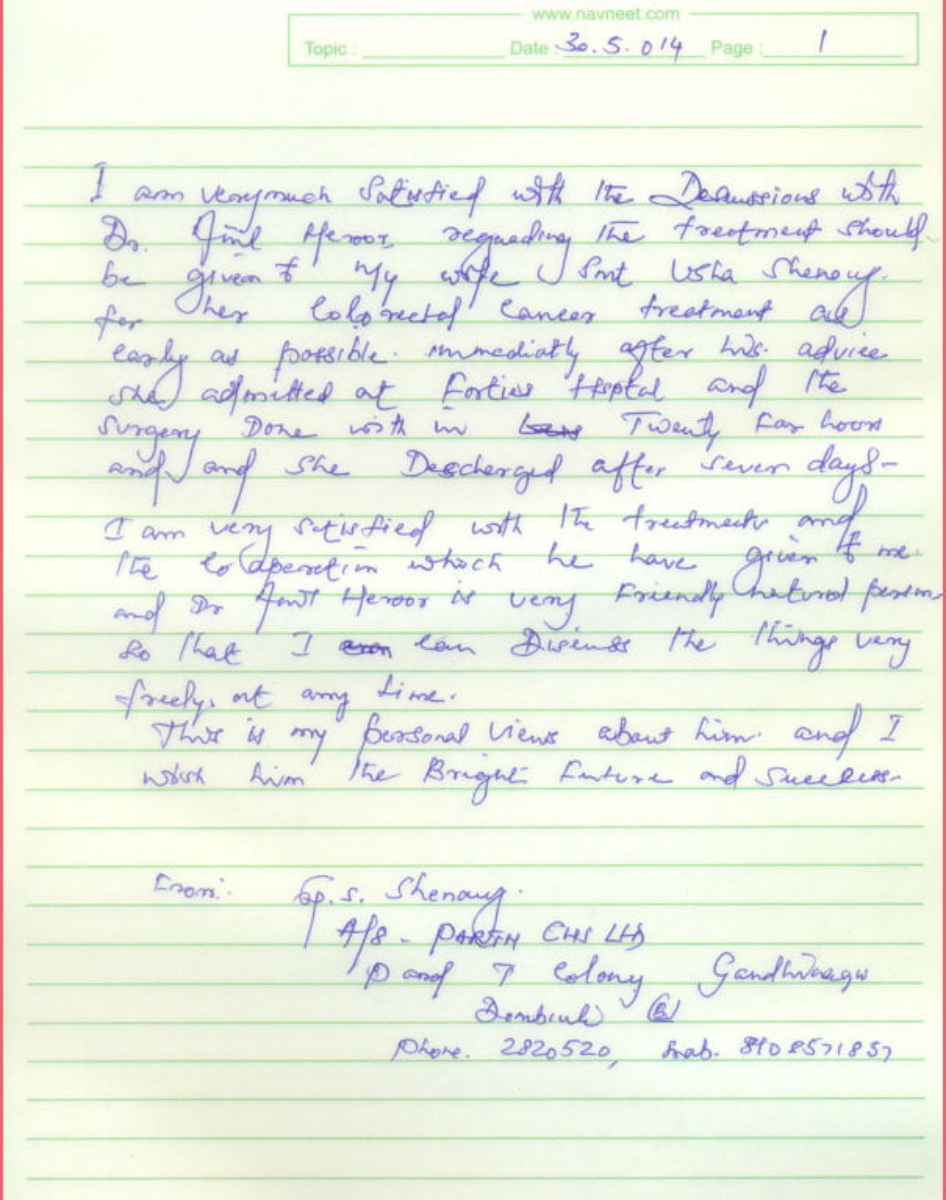 www.navneet.com
Topic : Date : 30.5.014 Page : 1
I am verymuch Satisfied with the Descussions with
Dr. Amit Heroor regarding the treatment should
be given to My wife Smt Usha Shenoy.
for her Colorectal Cancer treatment as
early as possible. immediatly after his advice
she admitted at Forties Hsptal and the
Surgery Done with in Twenty Four hoors
and and she Descharged after seven days-
I am very satisfied with the treatments and
the Cooperation which he have given to me.
and Dr Amit Heroor is very Friendly natured person
So that I can Discuss the things very
freely, at any time.
This is my personal views about him and I
wish him the Bright Future and Success-
From: G.P.S. Shenoy.
A/8 - PARTH CHS Ltd
P and T Colony Gandhinagar
Dombivli (E)
Phone. 2820520, Mob. 8108571857